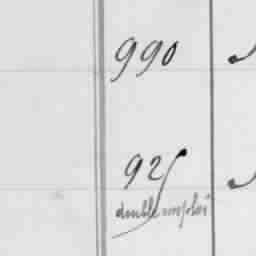 990
925
double emploi